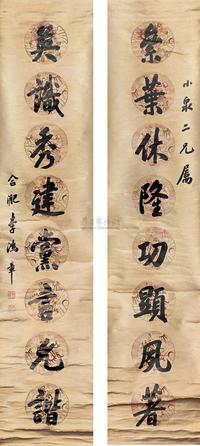 小泉二兄屬
崇業休隆功顯夙著
英識秀建黨言允諧
合肥李鴻章